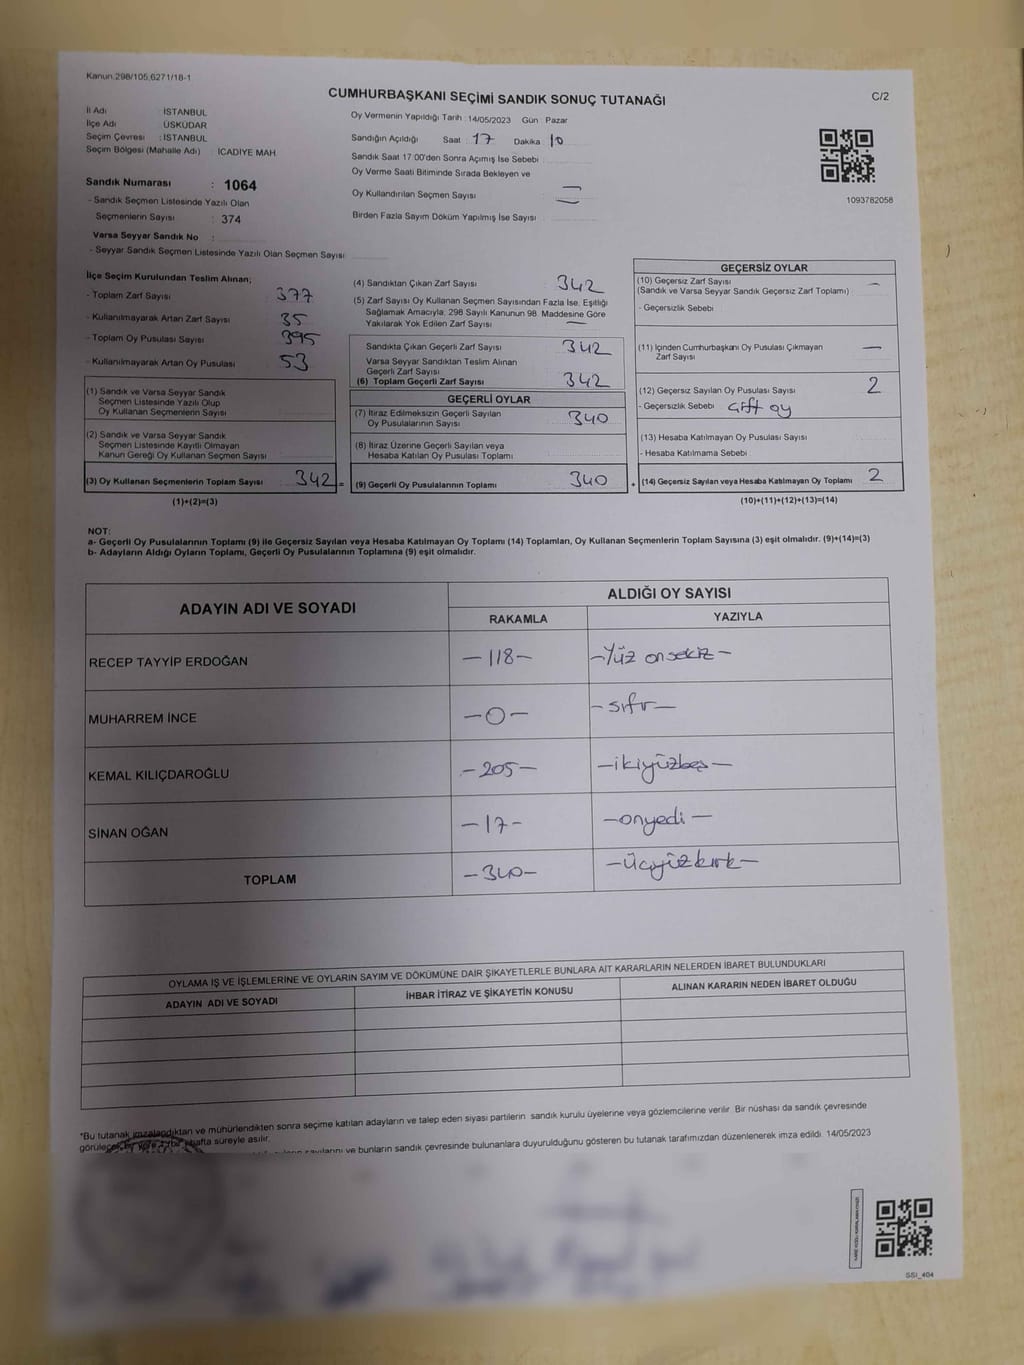 Kanun.298/105,6271/18-1
CUMHURBAŞKANI SEÇİMİ SANDIK SONUÇ TUTANAĞI
C/2
İl Adı : İSTANBUL
İlçe Adı : ÜSKÜDAR
Seçim Çevresi : İSTANBUL
Seçim Bölgesi (Mahalle Adı) : İCADİYE MAH.
Sandık Numarası : 1064
- Sandık Seçmen Listesinde Yazılı Olan
Seçmenlerin Sayısı : 374
Varsa Seyyar Sandık No :
- Seyyar Sandık Seçmen Listesinde Yazılı Olan Seçmen Sayısı:
Oy Vermenin Yapıldığı Tarih : 14/05/2023 Gün : Pazar
Sandığın Açıldığı Saat : 17 Dakika : 10
Sandık Saat 17.00'den Sonra Açımış İse Sebebi :
Oy Verme Saati Bitiminde Sırada Bekleyen ve
Oy Kullandırılan Seçmen Sayısı :
Birden Fazla Sayım Döküm Yapılmış İse Sayısı :
1093782058
İlçe Seçim Kurulundan Teslim Alınan;
- Toplam Zarf Sayısı : 377
- Kullanılmayarak Artan Zarf Sayısı : 35
- Toplam Oy Pusulası Sayısı : 395
- Kullanılmayarak Artan Oy Pusulası : 53
(1) Sandık ve Varsa Seyyar Sandık
Seçmen Listesinde Yazılı Olup
Oy Kullanan Seçmenlerin Sayısı :
(2) Sandık ve Varsa Seyyar Sandık
Seçmen Listesinde Kayıtlı Olmayan
Kanun Gereği Oy Kullanan Seçmen Sayısı :
(3) Oy Kullanan Seçmenlerin Toplam Sayısı : 342 =
(1)+(2)=(3)
(4) Sandıktan Çıkan Zarf Sayısı : 342
(5) Zarf Sayısı Oy Kullanan Seçmen Sayısından Fazla İse, Eşitliği
Sağlamak Amacıyla; 298 Sayılı Kanunun 98. Maddesine Göre
Yakılarak Yok Edilen Zarf Sayısı : —
Sandıkta Çıkan Geçerli Zarf Sayısı : 342
Varsa Seyyar Sandıktan Teslim Alınan
Geçerli Zarf Sayısı :
(6) Toplam Geçerli Zarf Sayısı : 342
GEÇERLİ OYLAR
(7) İtiraz Edilmeksizin Geçerli Sayılan
Oy Pusulalarının Sayısı : 340
(8) İtiraz Üzerine Geçerli Sayılan veya
Hesaba Katılan Oy Pusulası Toplamı :
(9) Geçerli Oy Pusulalarının Toplamı : 340 +
GEÇERSİZ OYLAR
(10) Geçersiz Zarf Sayısı : —
(Sandık ve Varsa Seyyar Sandık Geçersiz Zarf Toplamı)
- Geçersizlik Sebebi :
(11) İçinden Cumhurbaşkanı Oy Pusulası Çıkmayan : —
Zarf Sayısı
(12) Geçersiz Sayılan Oy Pusulası Sayısı : 2
- Geçersizlik Sebebi : Çift oy
(13) Hesaba Katılmayan Oy Pusulası Sayısı :
- Hesaba Katılmama Sebebi :
(14) Geçersiz Sayılan veya Hesaba Katılmayan Oy Toplamı : 2
(10)+(11)+(12)+(13)=(14)
NOT:
a- Geçerli Oy Pusulalarının Toplamı (9) ile Geçersiz Sayılan veya Hesaba Katılmayan Oy Toplamı (14) Toplamları, Oy Kullanan Seçmenlerin Toplam Sayısına (3) eşit olmalıdır. (9)+(14)=(3)
b- Adayların Aldığı Oyların Toplamı, Geçerli Oy Pusulalarının Toplamına (9) eşit olmalıdır.
ADAYIN ADI VE SOYADI
ALDIĞI OY SAYISI
RAKAMLA
YAZIYLA
RECEP TAYYİP ERDOĞAN -118- -Yüz onsekiz-
MUHARREM İNCE -0- -sıfır-
KEMAL KILIÇDAROĞLU -205- -ikiyüzbeş-
SİNAN OĞAN -17- -onyedi-
TOPLAM -340- -üçyüzkırk-
OYLAMA İŞ VE İŞLEMLERİNE VE OYLARIN SAYIM VE DÖKÜMÜNE DAİR ŞİKAYETLERLE BUNLARA AİT KARARLARIN NELERDEN İBARET BULUNDUKLARI
ADAYIN ADI VE SOYADI
İHBAR İTİRAZ VE ŞİKAYETİN KONUSU
ALINAN KARARIN NEDEN İBARET OLDUĞU
*Bu tutanak imzalandıktan ve mühürlendikten sonra seçime katılan adayların ve talep eden siyasi partilerin sandık kurulu üyelerine veya gözlemcilerine verilir. Bir nüshası da sandık çevresinde
görülecek bir yere 1 bir hafta süreyle asılır.
ve bunların sandık çevresinde bulunanlara duyurulduğunu gösteren bu tutanak tarafımızdan düzenlenerek imza edildi. 14/05/2023
SSİ_404